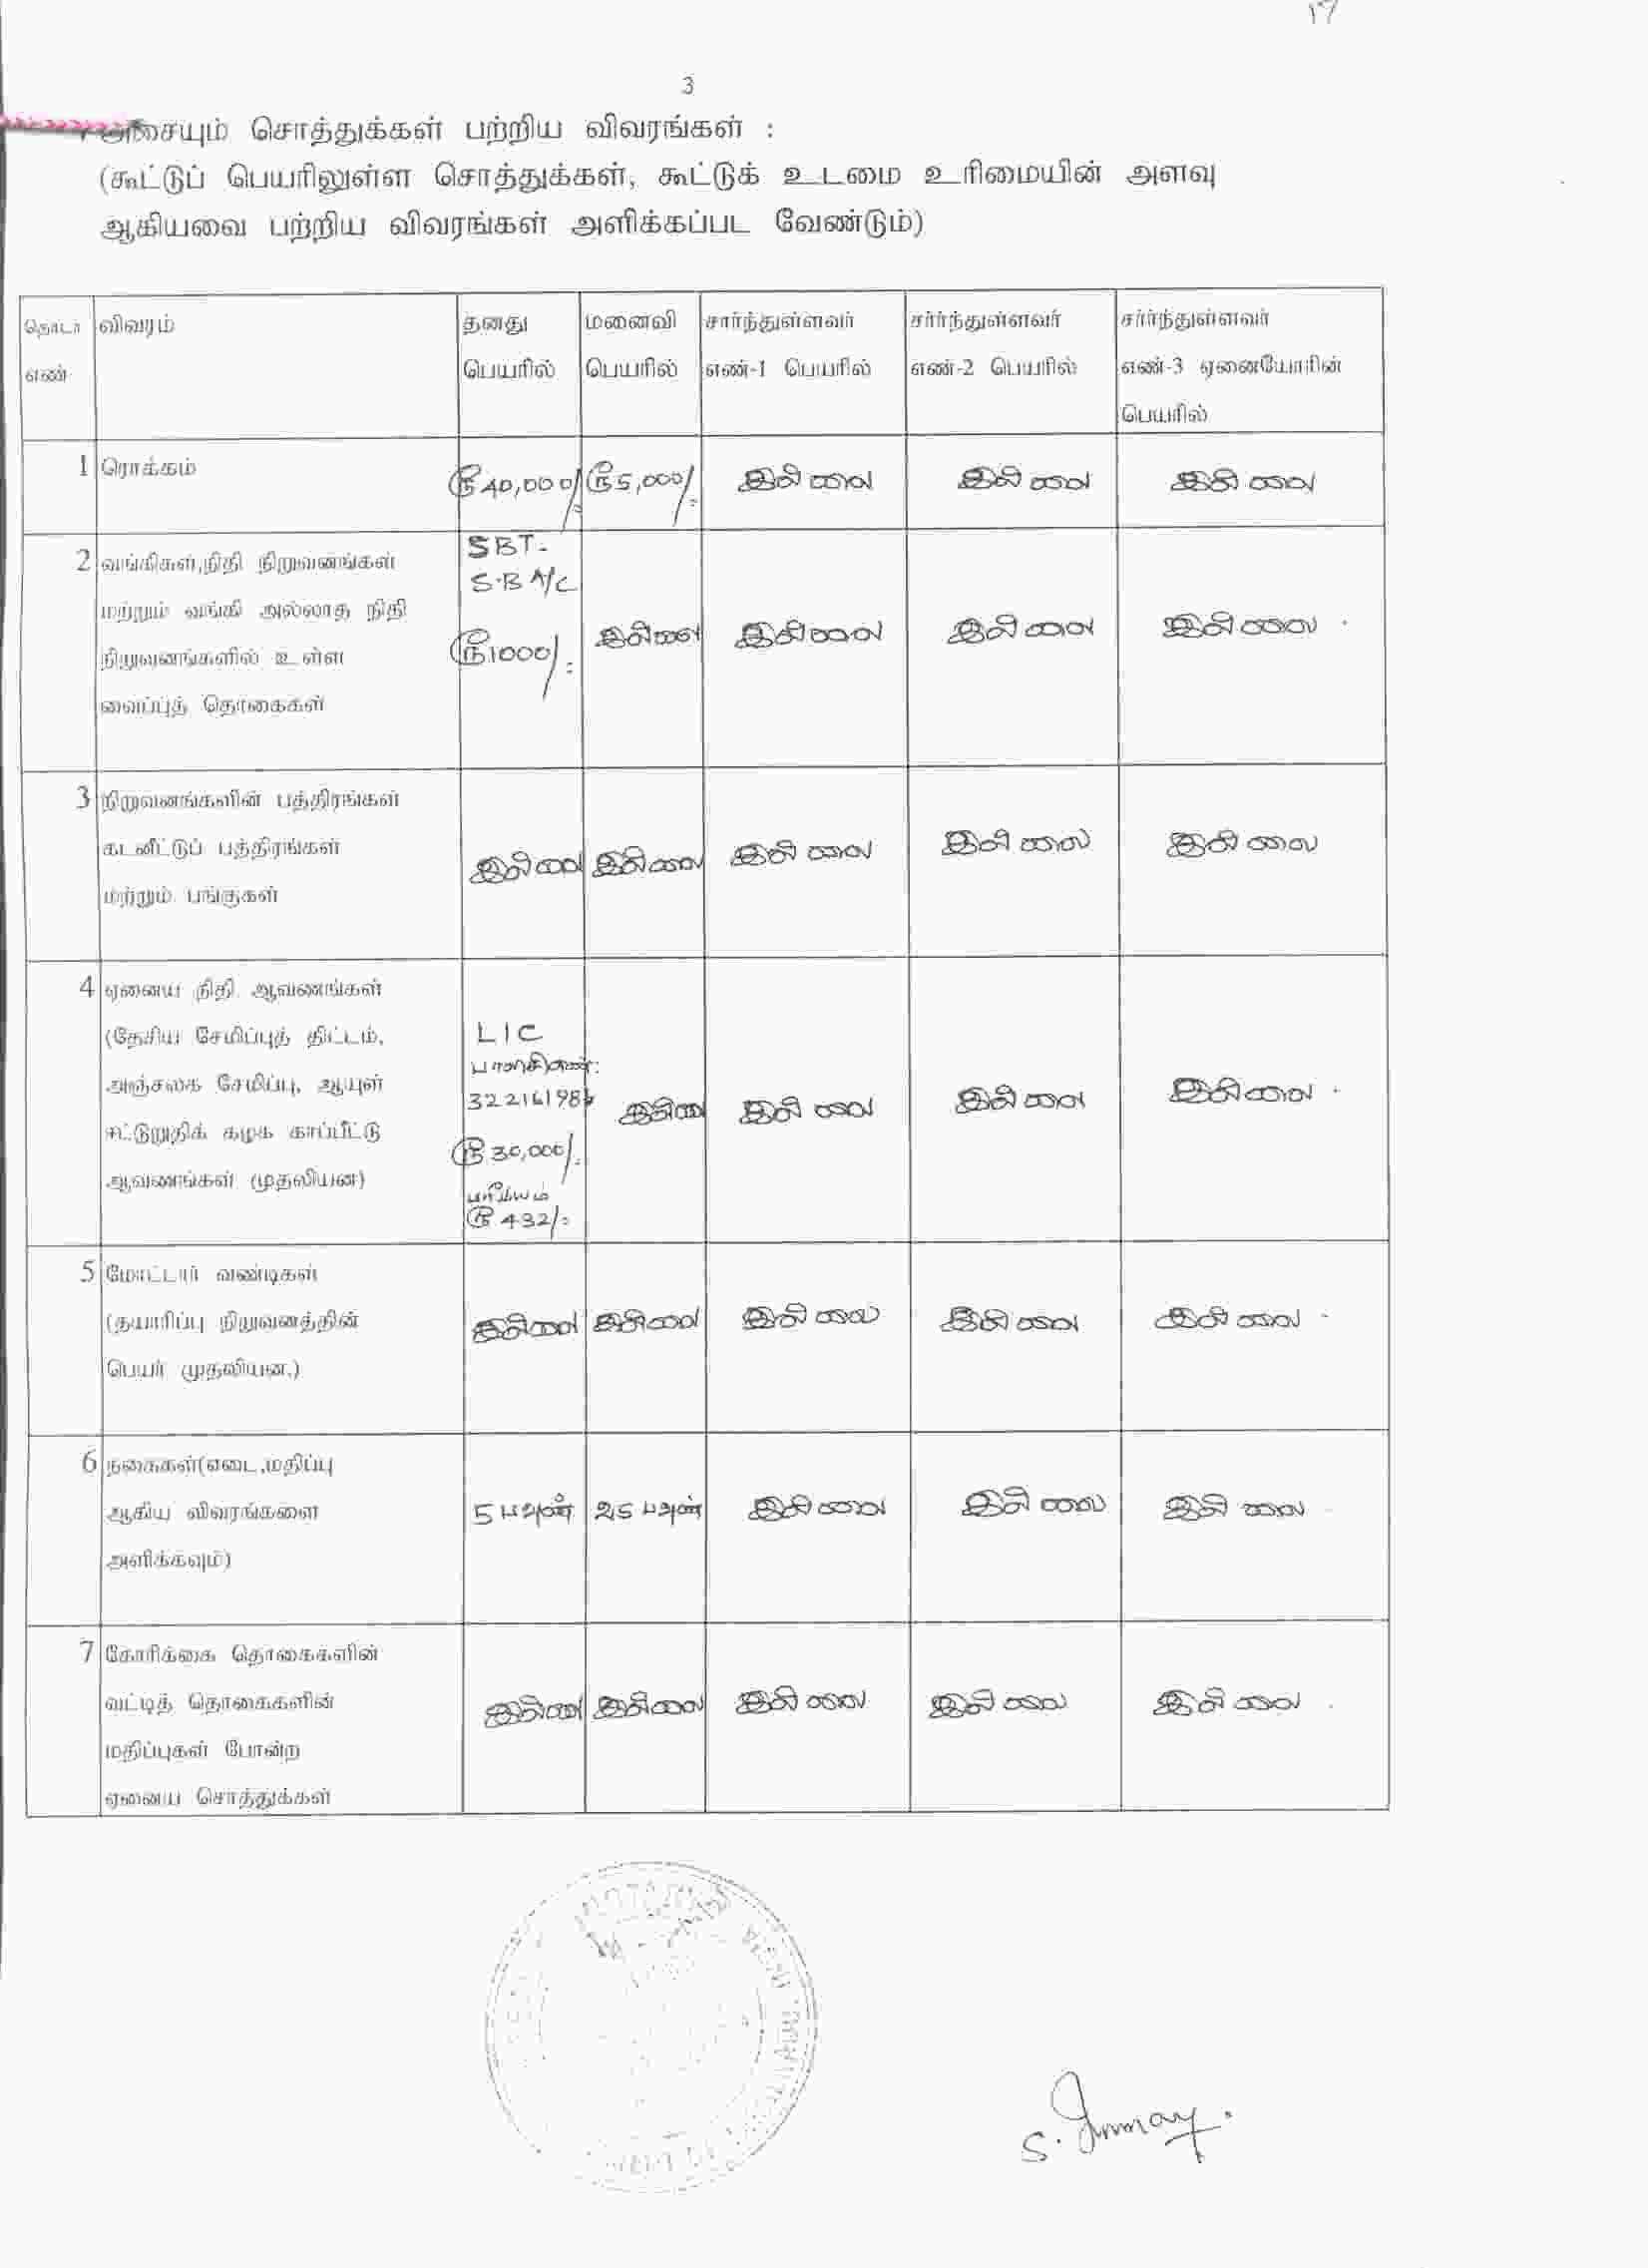 17
3
அசையும் சொத்துக்கள் பற்றிய விவரங்கள் :
(கூட்டுப் பெயரிலுள்ள சொத்துக்கள், கூட்டுக் உடமை உரிமையின் அளவு
ஆகியவை பற்றிய விவரங்கள் அளிக்கப்பட வேண்டும்)
தொடர் எண் விவரம் தனது பெயரில் மனைவி பெயரில் சார்ந்துள்ளவர் எண்-1 பெயரில் சார்ந்துள்ளவர் எண்-2 பெயரில் சார்ந்துள்ளவர் எண்-3 ஏனையோரின் பெயரில்
1 ரொக்கம் ரூ 40,000/- ரூ 5,000/- இல்லை இல்லை இல்லை
2 வங்கிகள்,நிதி நிறுவனங்கள்
மற்றும் வங்கி அல்லாத நிதி
நிறுவனங்களில் உள்ள
வைப்புத் தொகைகள்
SBT-
S.B A/C
ரூ 1000/-
இல்லை இல்லை இல்லை இல்லை
3 நிறுவனங்களின் பத்திரங்கள்
கடனீட்டுப் பத்திரங்கள்
மற்றும் பங்குகள்
இல்லை இல்லை இல்லை இல்லை இல்லை
4 ஏனைய நிதி ஆவணங்கள்
(தேசிய சேமிப்புத் திட்டம்,
அஞ்சலக சேமிப்பு, ஆயுள்
ஈட்டுறுதிக் கழக காப்பீட்டு
ஆவணங்கள் (முதலியன)
LIC
பாலிசிஎண்:
ரூ 30,000/-
பிரிமியம்
ரூ 432/-
இல்லை இல்லை இல்லை இல்லை
5 மோட்டார் வண்டிகள்
(தயாரிப்பு நிறுவனத்தின்
பெயர் முதலியன.)
இல்லை இல்லை இல்லை இல்லை இல்லை
6 நகைகள்(எடை,மதிப்பு
ஆகிய விவரங்களை
அளிக்கவும்)
5 பவுன் 25 பவுன் இல்லை இல்லை இல்லை
7 கோரிக்கை தொகைகளின்
வட்டித் தொகைகளின்
மதிப்புகள் போன்ற
ஏனைய சொத்துக்கள்
இல்லை இல்லை இல்லை இல்லை இல்லை